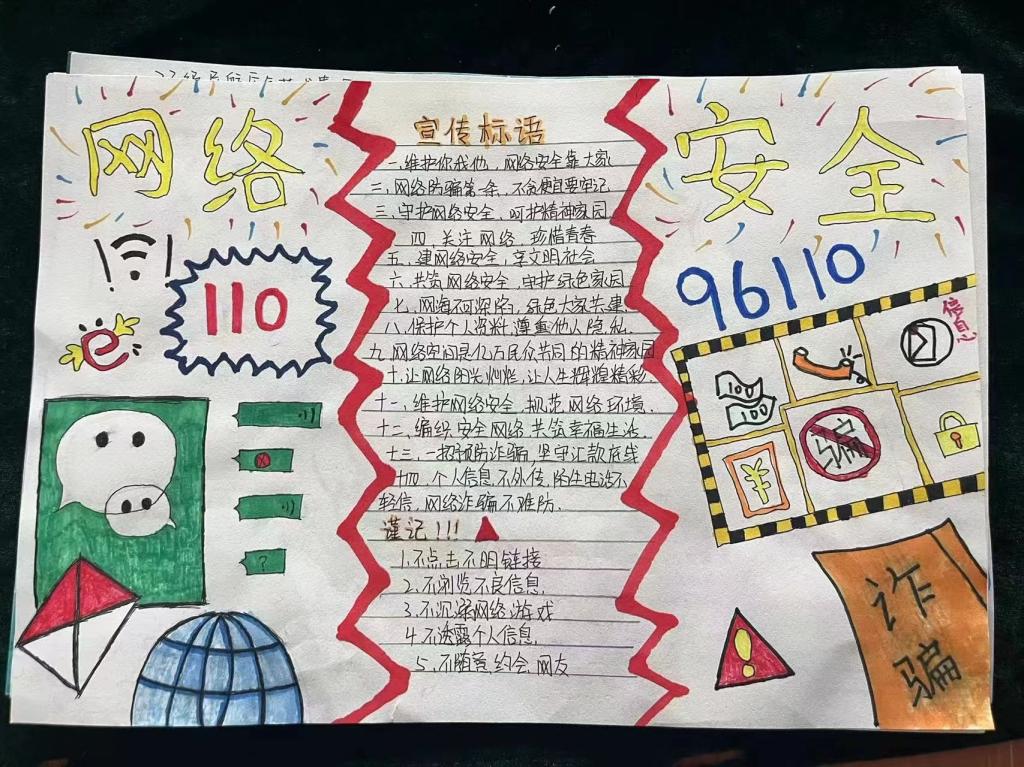 网络
安全
110
96110
宣传标语
一、维护你我他，网络安全靠大家
二、网络防骗第一条，不贪便宜要牢记
三、守护网络安全，呵护精神家园
四、关注网络，珍惜青春
五、建网络安全，享文明社会
六、共筑网络安全，守护绿色家园
七、网海何深陷，绿色大家共建
八、保护个人资料，尊重他人隐私.
九、网络空间是亿万民众共同的精神家园
十、让网络阳光灿烂，让人生辉煌精彩.
十一、维护网络安全，规范网络环境.
十二、编织安全网络，共筑幸福生活.
十三、一招预防诈骗，坚守汇款底线
十四、个人信息不外传，陌生电话不
轻信，网络诈骗不难防.
谨记!!!
1.不点击不明链接
2.不浏览不良信息.
3.不沉溺网络游戏
4.不透露个人信息.
5.不随意约会网友
100
100
骗
诈
骗